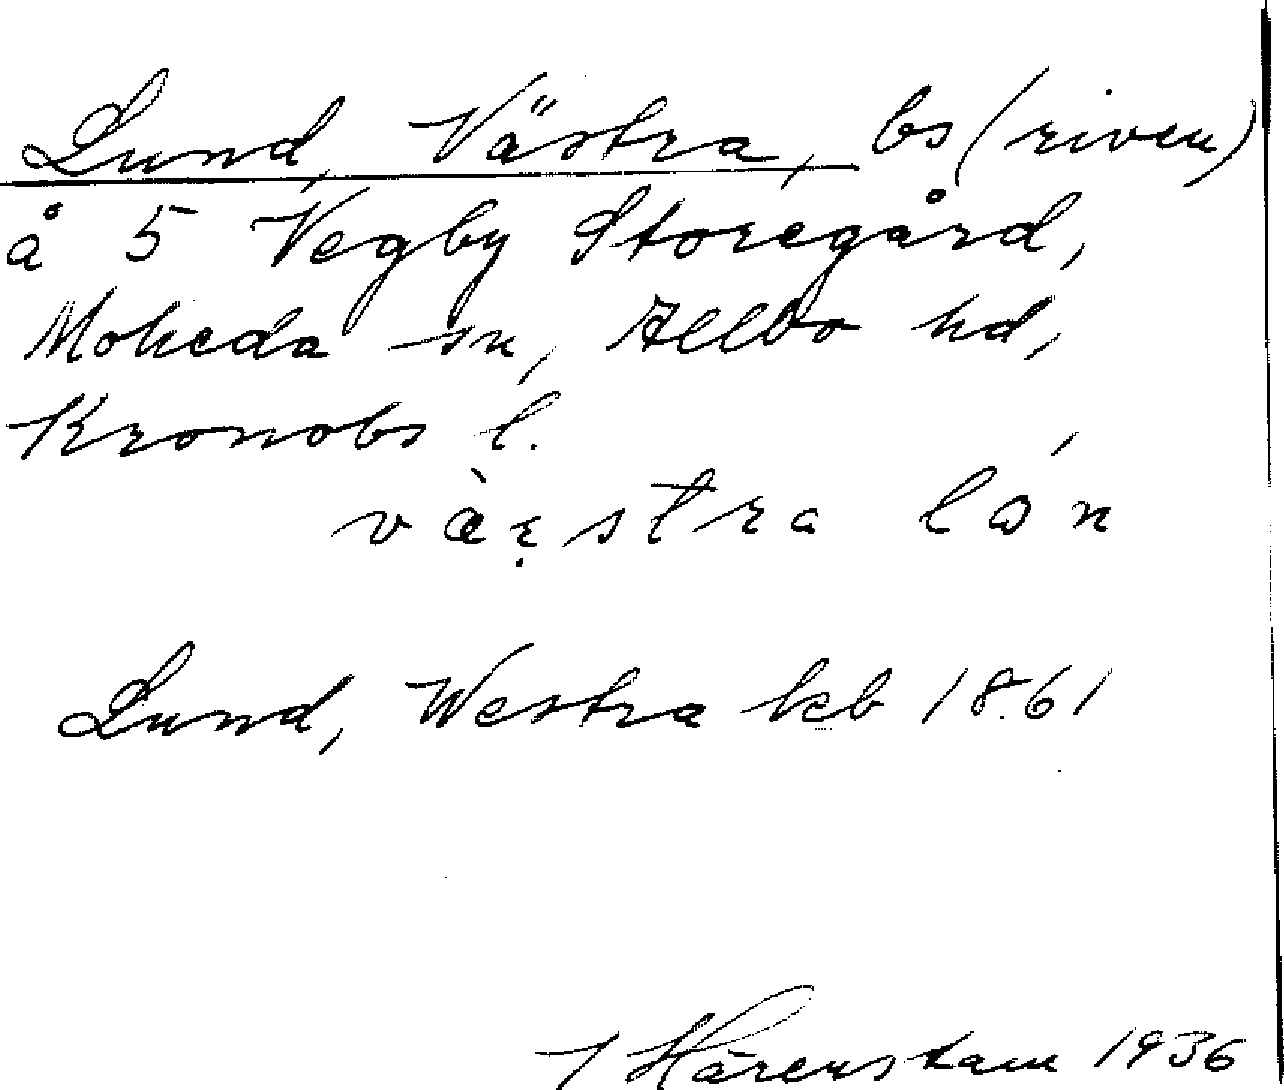 Lund, Västra, bs (riven)
å 5 Vegby Storegård,
Moheda sn, Allbo hd,
Kronobs l.
væ̀ẹstra lón
Lund, Westra kb 1861
J Härenstam 1936